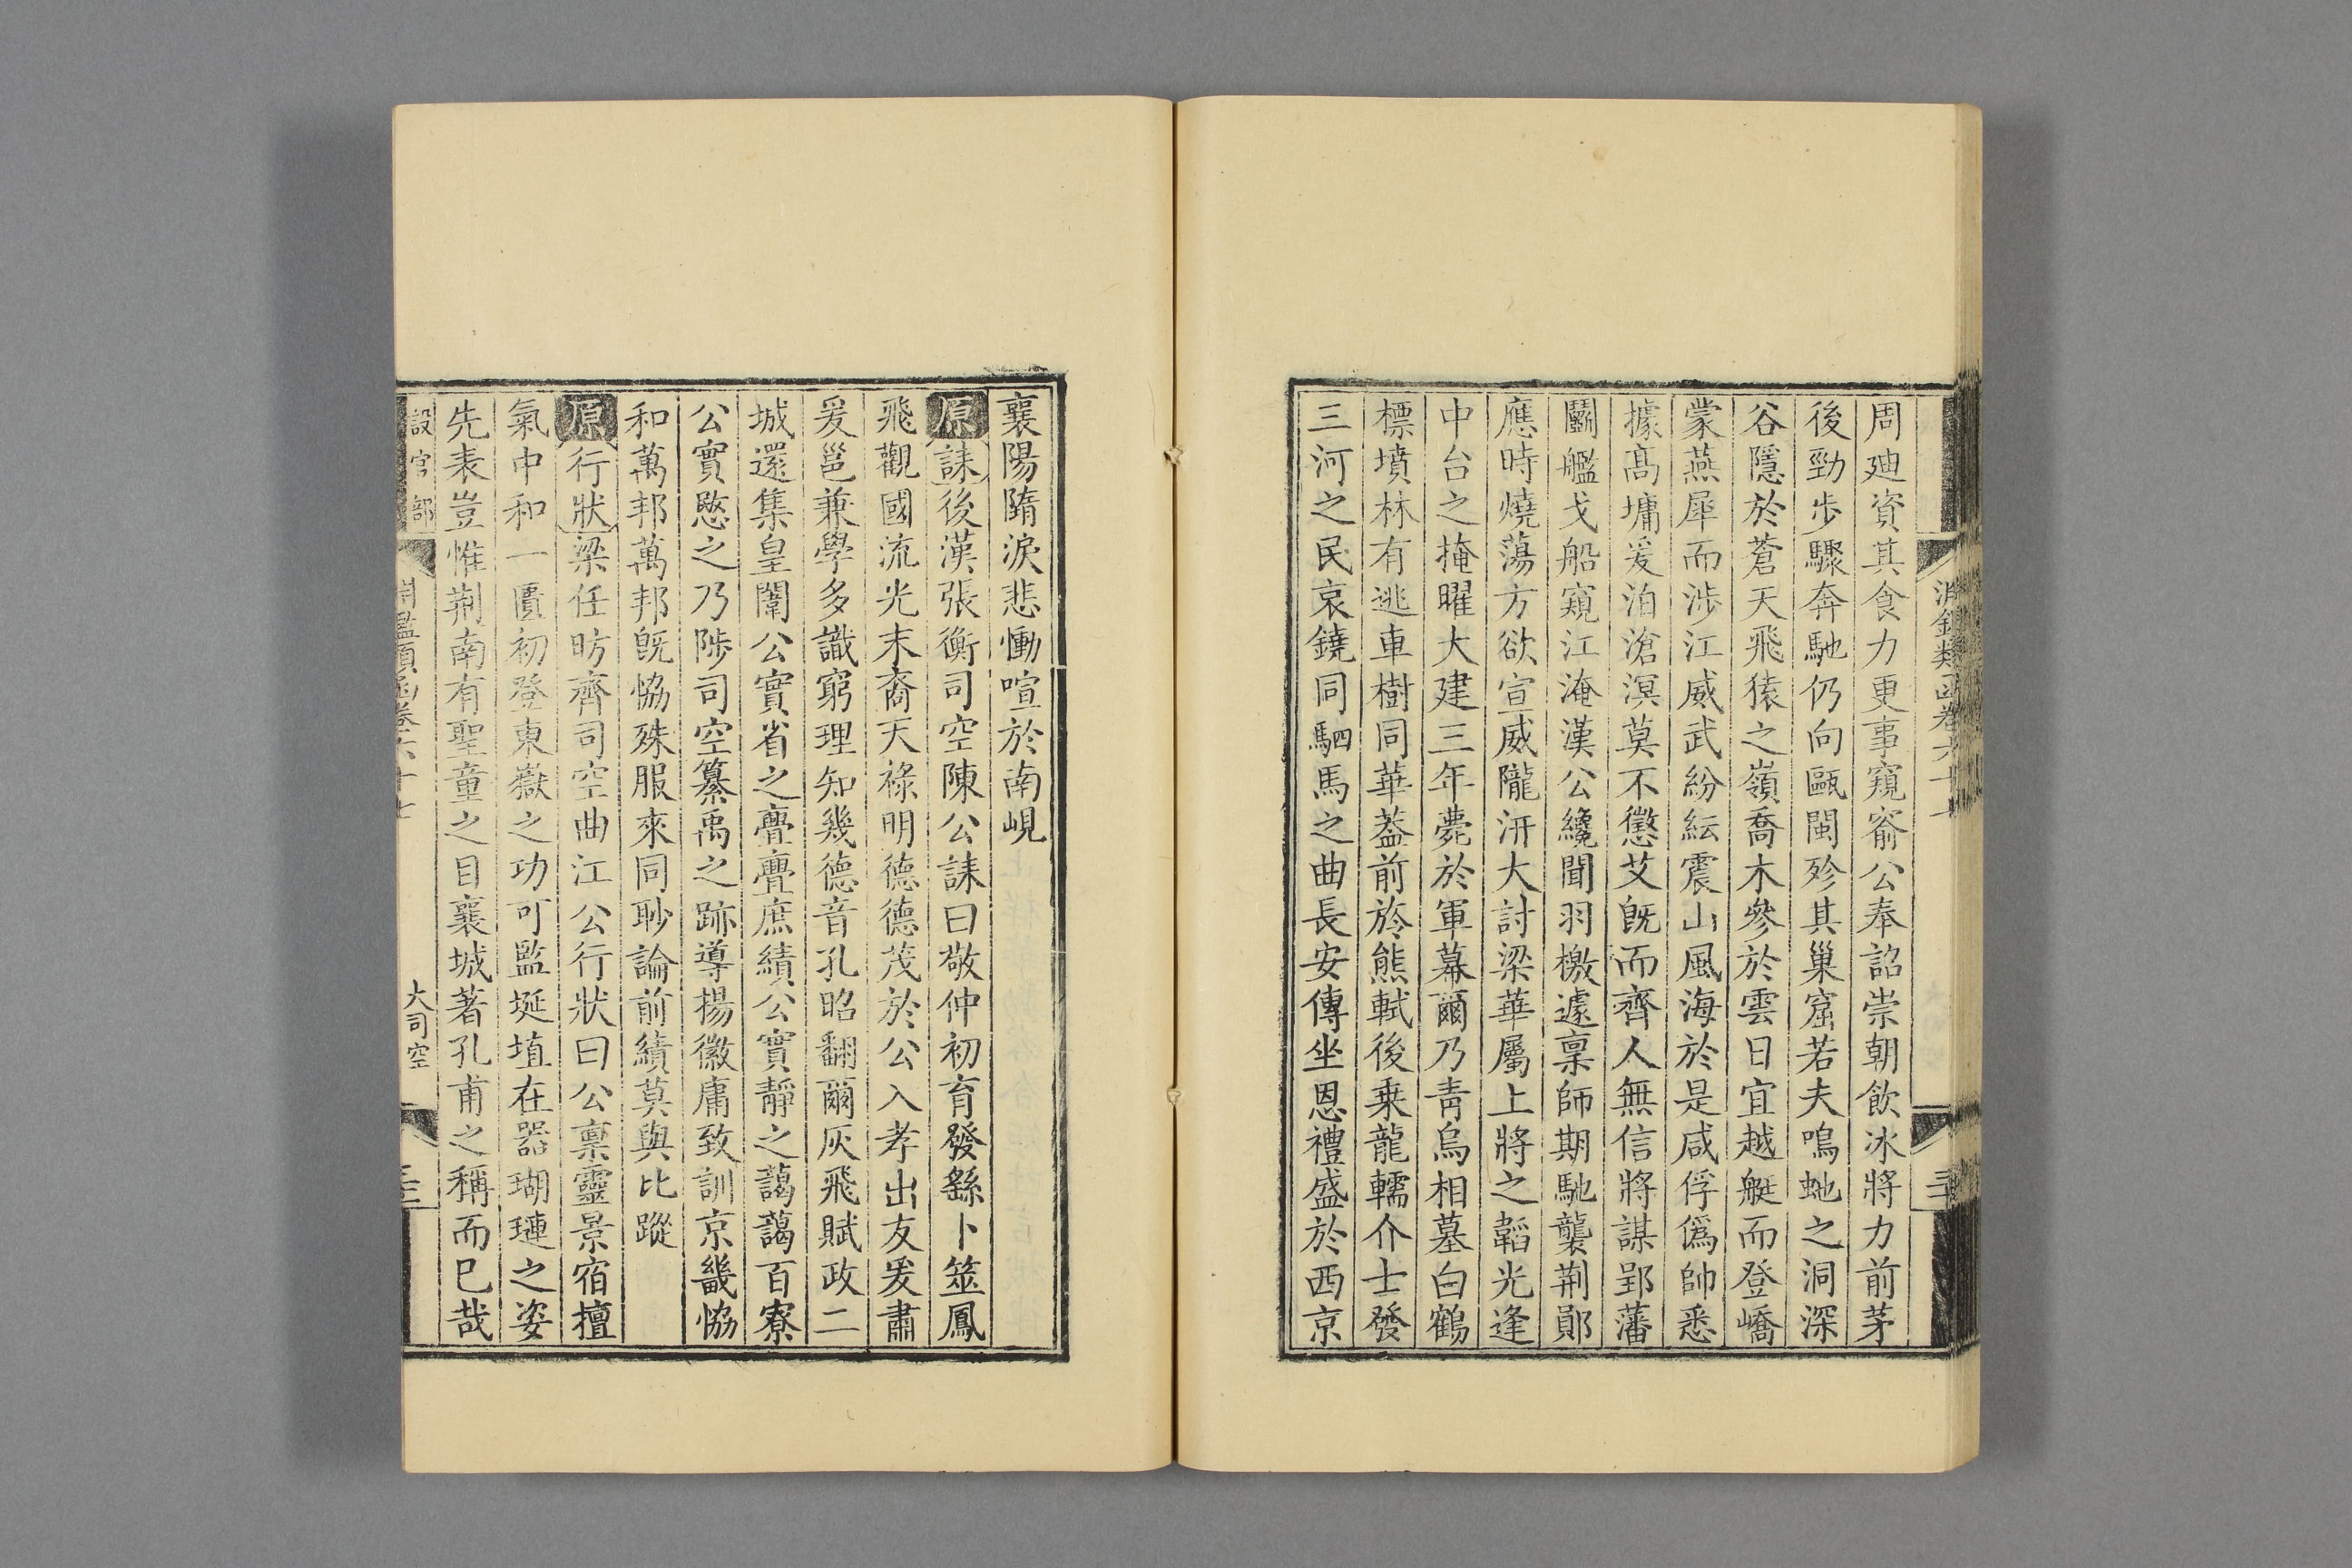 周廸資其食力更事窺窬公奉詔崇朝飲冰將力前茅
後勁步驟奔馳仍向甌閩殄其巢窟若夫鳴虵之洞深
谷隱於蒼天飛猿之嶺喬木參於雲日宜越艇而登嶠
蒙燕犀而涉江威武紛紜震山風海於是咸俘僞帥悉
據髙墉爰泊滄溟莫不懲艾旣而齊人無信將謀郢藩
鬬艦戈船窺江淹漢公纔聞羽檄遽稟師期馳襲荆鄖
應時燒蕩方欲宣威隴汧大討梁華屬上將之韜光逢
中台之掩曜大建三年薨於軍幕爾乃青烏相墓白鶴
標墳林有逃車樹同華葢前於熊軾後乗龍轜介士發
三河之民哀鐃同駟馬之曲長安傳坐恩禮盛於西京
襄陽隋淚悲慟喧於南峴
原誄後漢張衡司空陳公誄曰敬仲初育發繇卜筮鳳
飛觀國流光末裔天祿明德德茂於公入孝出友爰肅
爰邕兼學多識窮理知幾德音孔昭翻爾灰飛賦政二
城還集皇闈公實省之亹亹庶績公實靜之藹藹百寮
公實愍之乃陟司空纂禹之跡導揚徽庸致訓京畿恊
和萬邦萬邦旣恊殊服來同耖論前績莫與比蹤
原行狀梁任昉齊司空曲江公行狀曰公稟靈景宿擅
氣中和一匱初登東嶽之功可監埏埴在器瑚璉之姿
先表豈惟荆南有聖童之目襄城著孔甫之稱而巳哉
設官部
淵鑑類函卷六十七
大司空